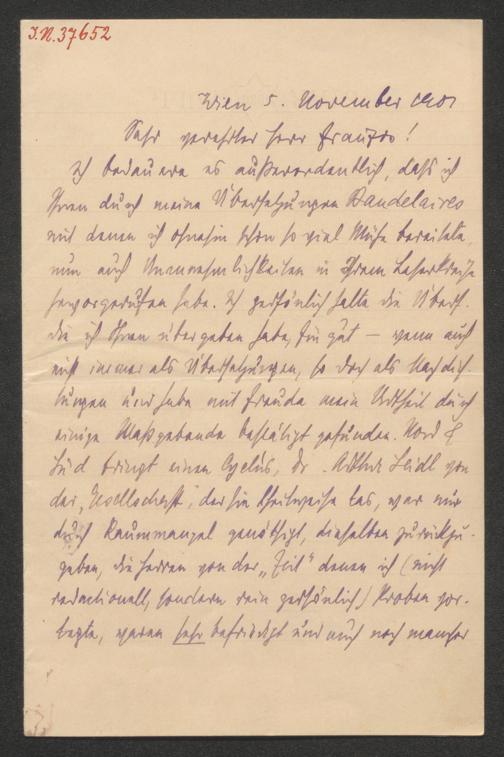 I.N. 37652
Wien 5. November 1901
Sehr verehrter Herr Franzos!
Ich bedauere es außerordentlich, daß ich
Ihnen durch meine Übersetzungen Baudelaires
mit denen ich ohnehin schon so viel Mühe bereitete,
nun auch Unannehmlichkeiten in Ihrem Leserkreise
hervorgerufen habe. Ich persönlich halte die Übers.
die ich Ihnen übergeben habe, für gut – wenn auch
nicht immer als Übersetzungen, so doch als Nachdich-
tungen und habe mit Freude mein Urtheil durch
einige Maßgebende bestätigt gefunden. Nord &
Süd bringt einen Cyclus, Dr. Arthur Seidl von
der „Gesellschaft", der sie theilweise las, war nur
durch Raummangel genöthigt, dieselben zurückzu-
geben, die Herren von der „Zeit" denen ich (nicht
redactionell, sondern rein persönlich) Proben vor-
legte, waren sehr befriedigt und auch noch mancher